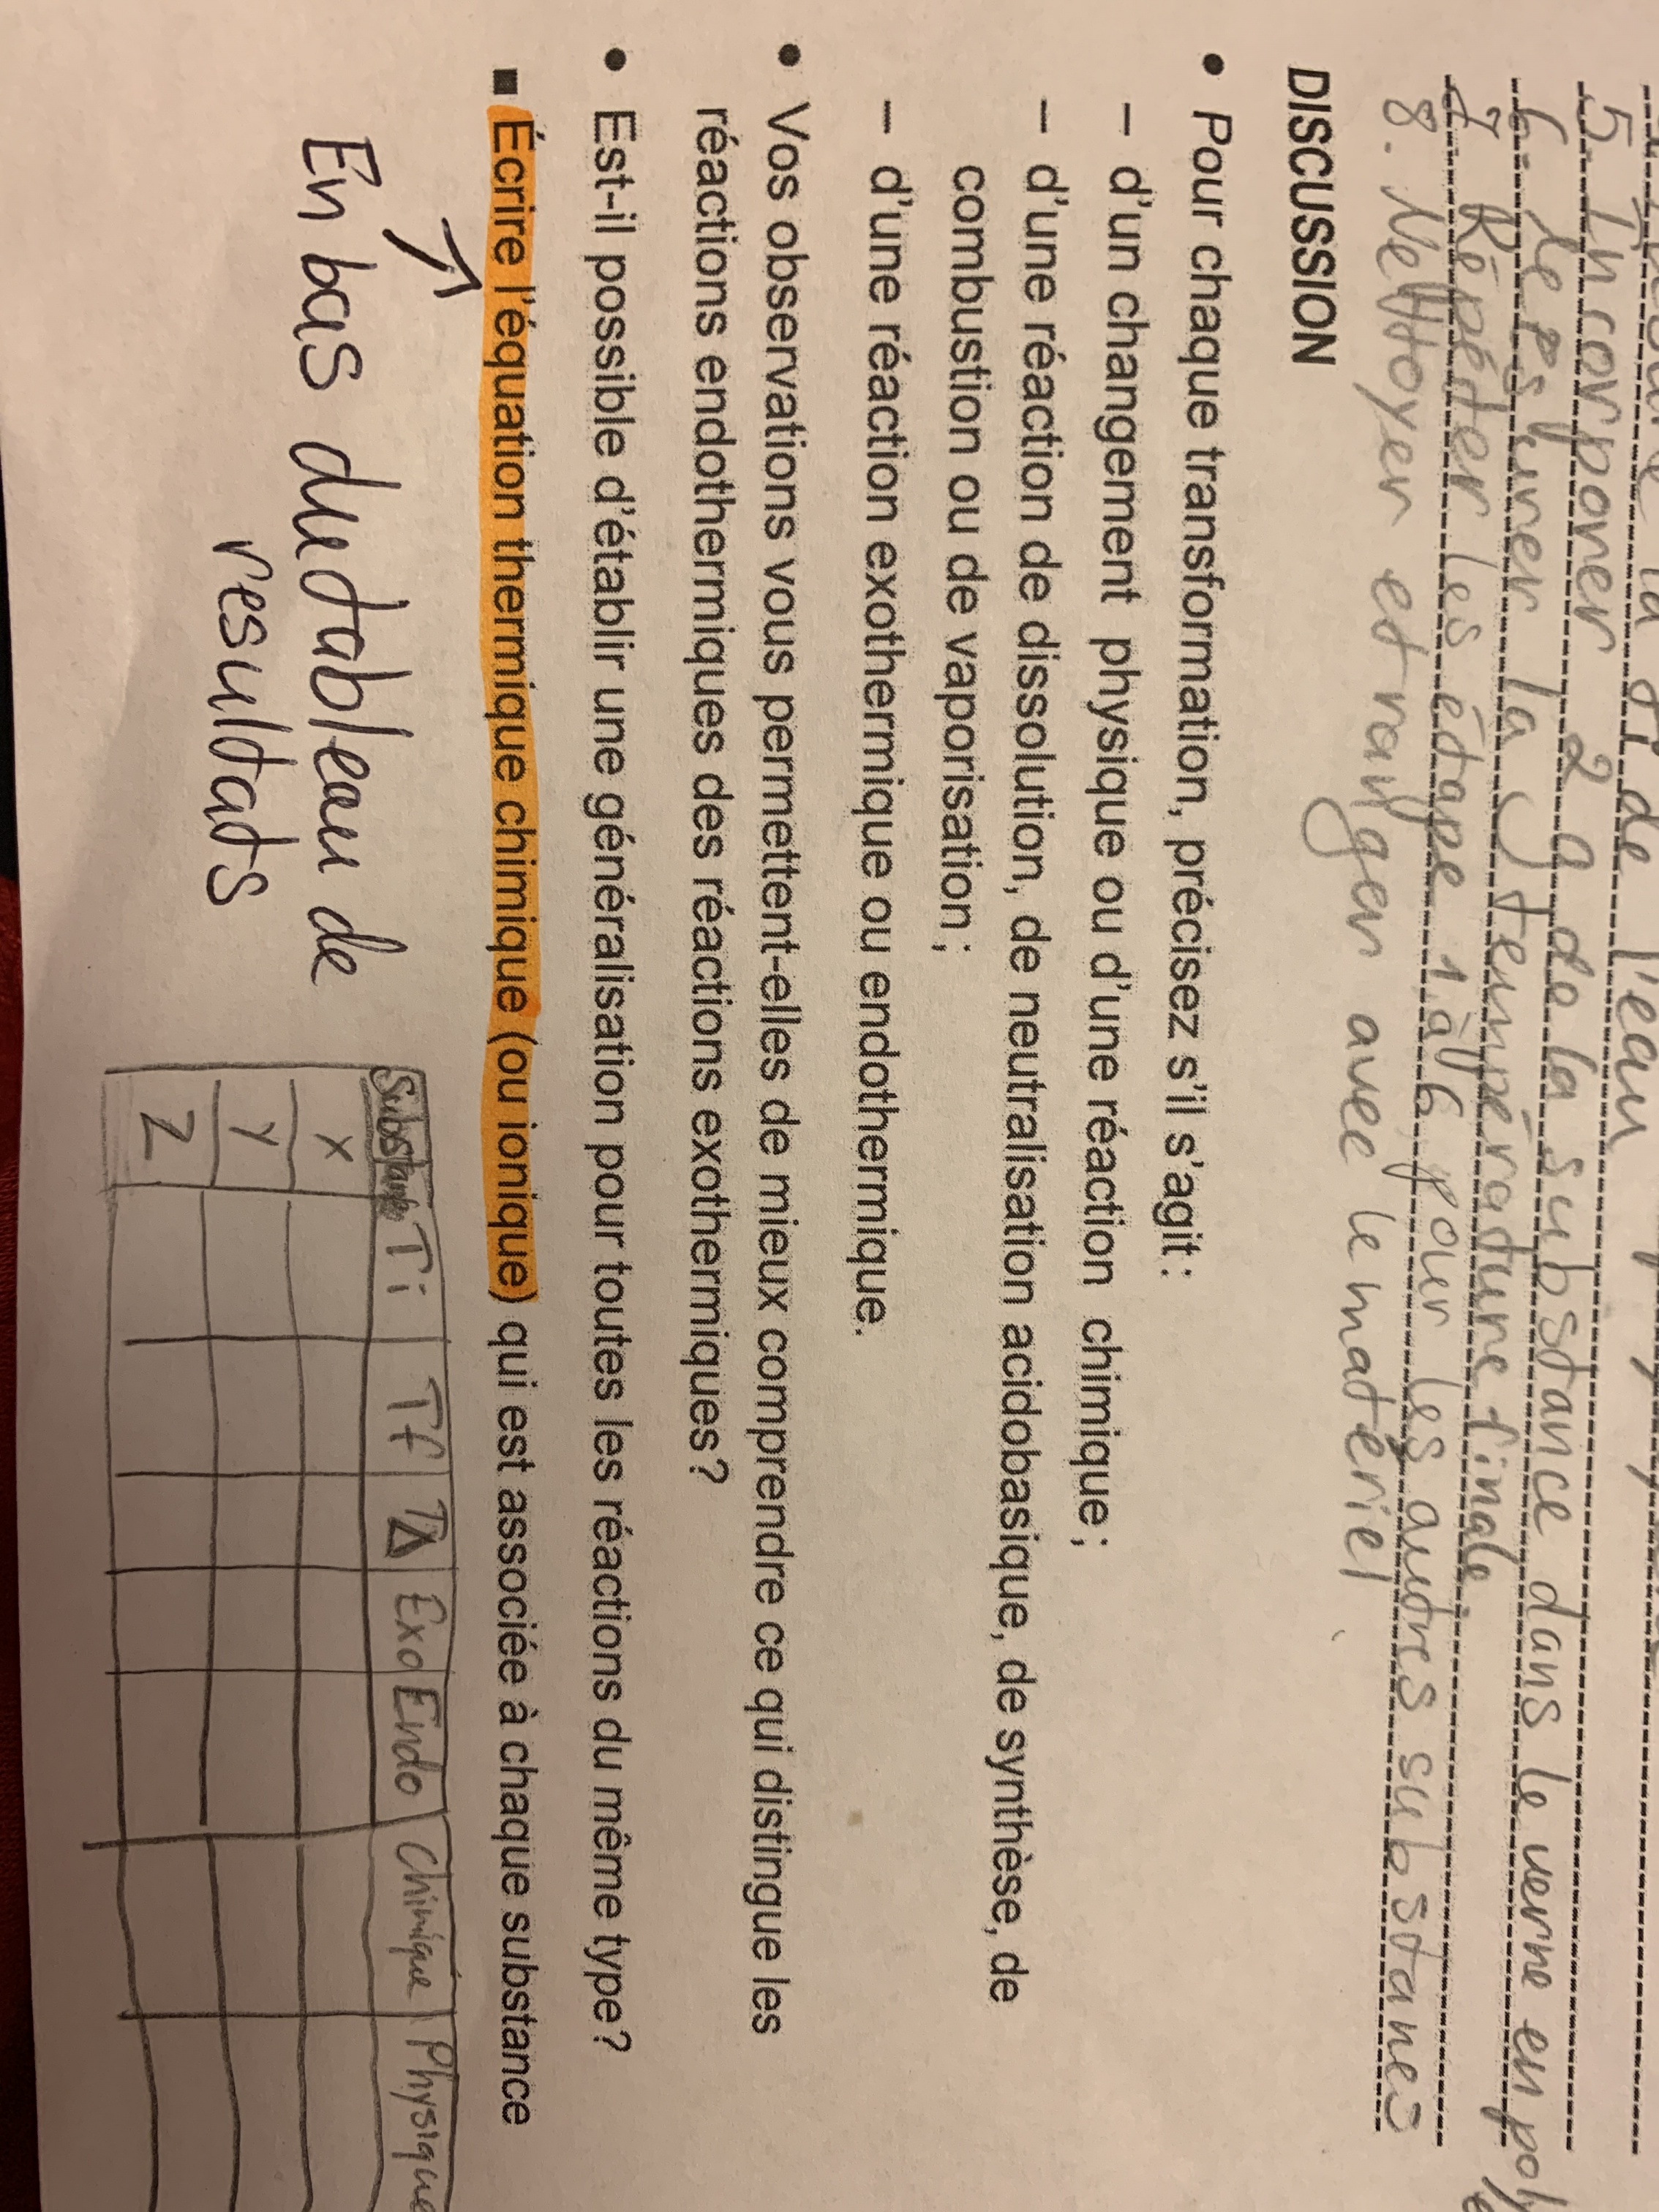 la T de l'eau
5. Incorporer 2 g de la substance dans le verre en
6. Mesurer la température finale.
7. Répéter les étape 1 à 6 pour les autres substances
8. Nettoyer et ranger avec le matériel
DISCUSSION
• Pour chaque transformation, précisez s'il s'agit :
– d'un changement physique ou d'une réaction chimique ;
– d'une réaction de dissolution, de neutralisation acidobasique, de synthèse, de
combustion ou de vaporisation ;
– d'une réaction exothermique ou endothermique.
• Vos observations vous permettent-elles de mieux comprendre ce qui distingue les
réactions endothermiques des réactions exothermiques ?
• Est-il possible d'établir une généralisation pour toutes les réactions du même type ?
▪ Écrire l'équation thermique chimique (ou ionique) qui est associée à chaque substance
En bas du tableau de
resultats
Substance Ti Tf TΔ Exo Endo Chimique Physique
X
Y
Z